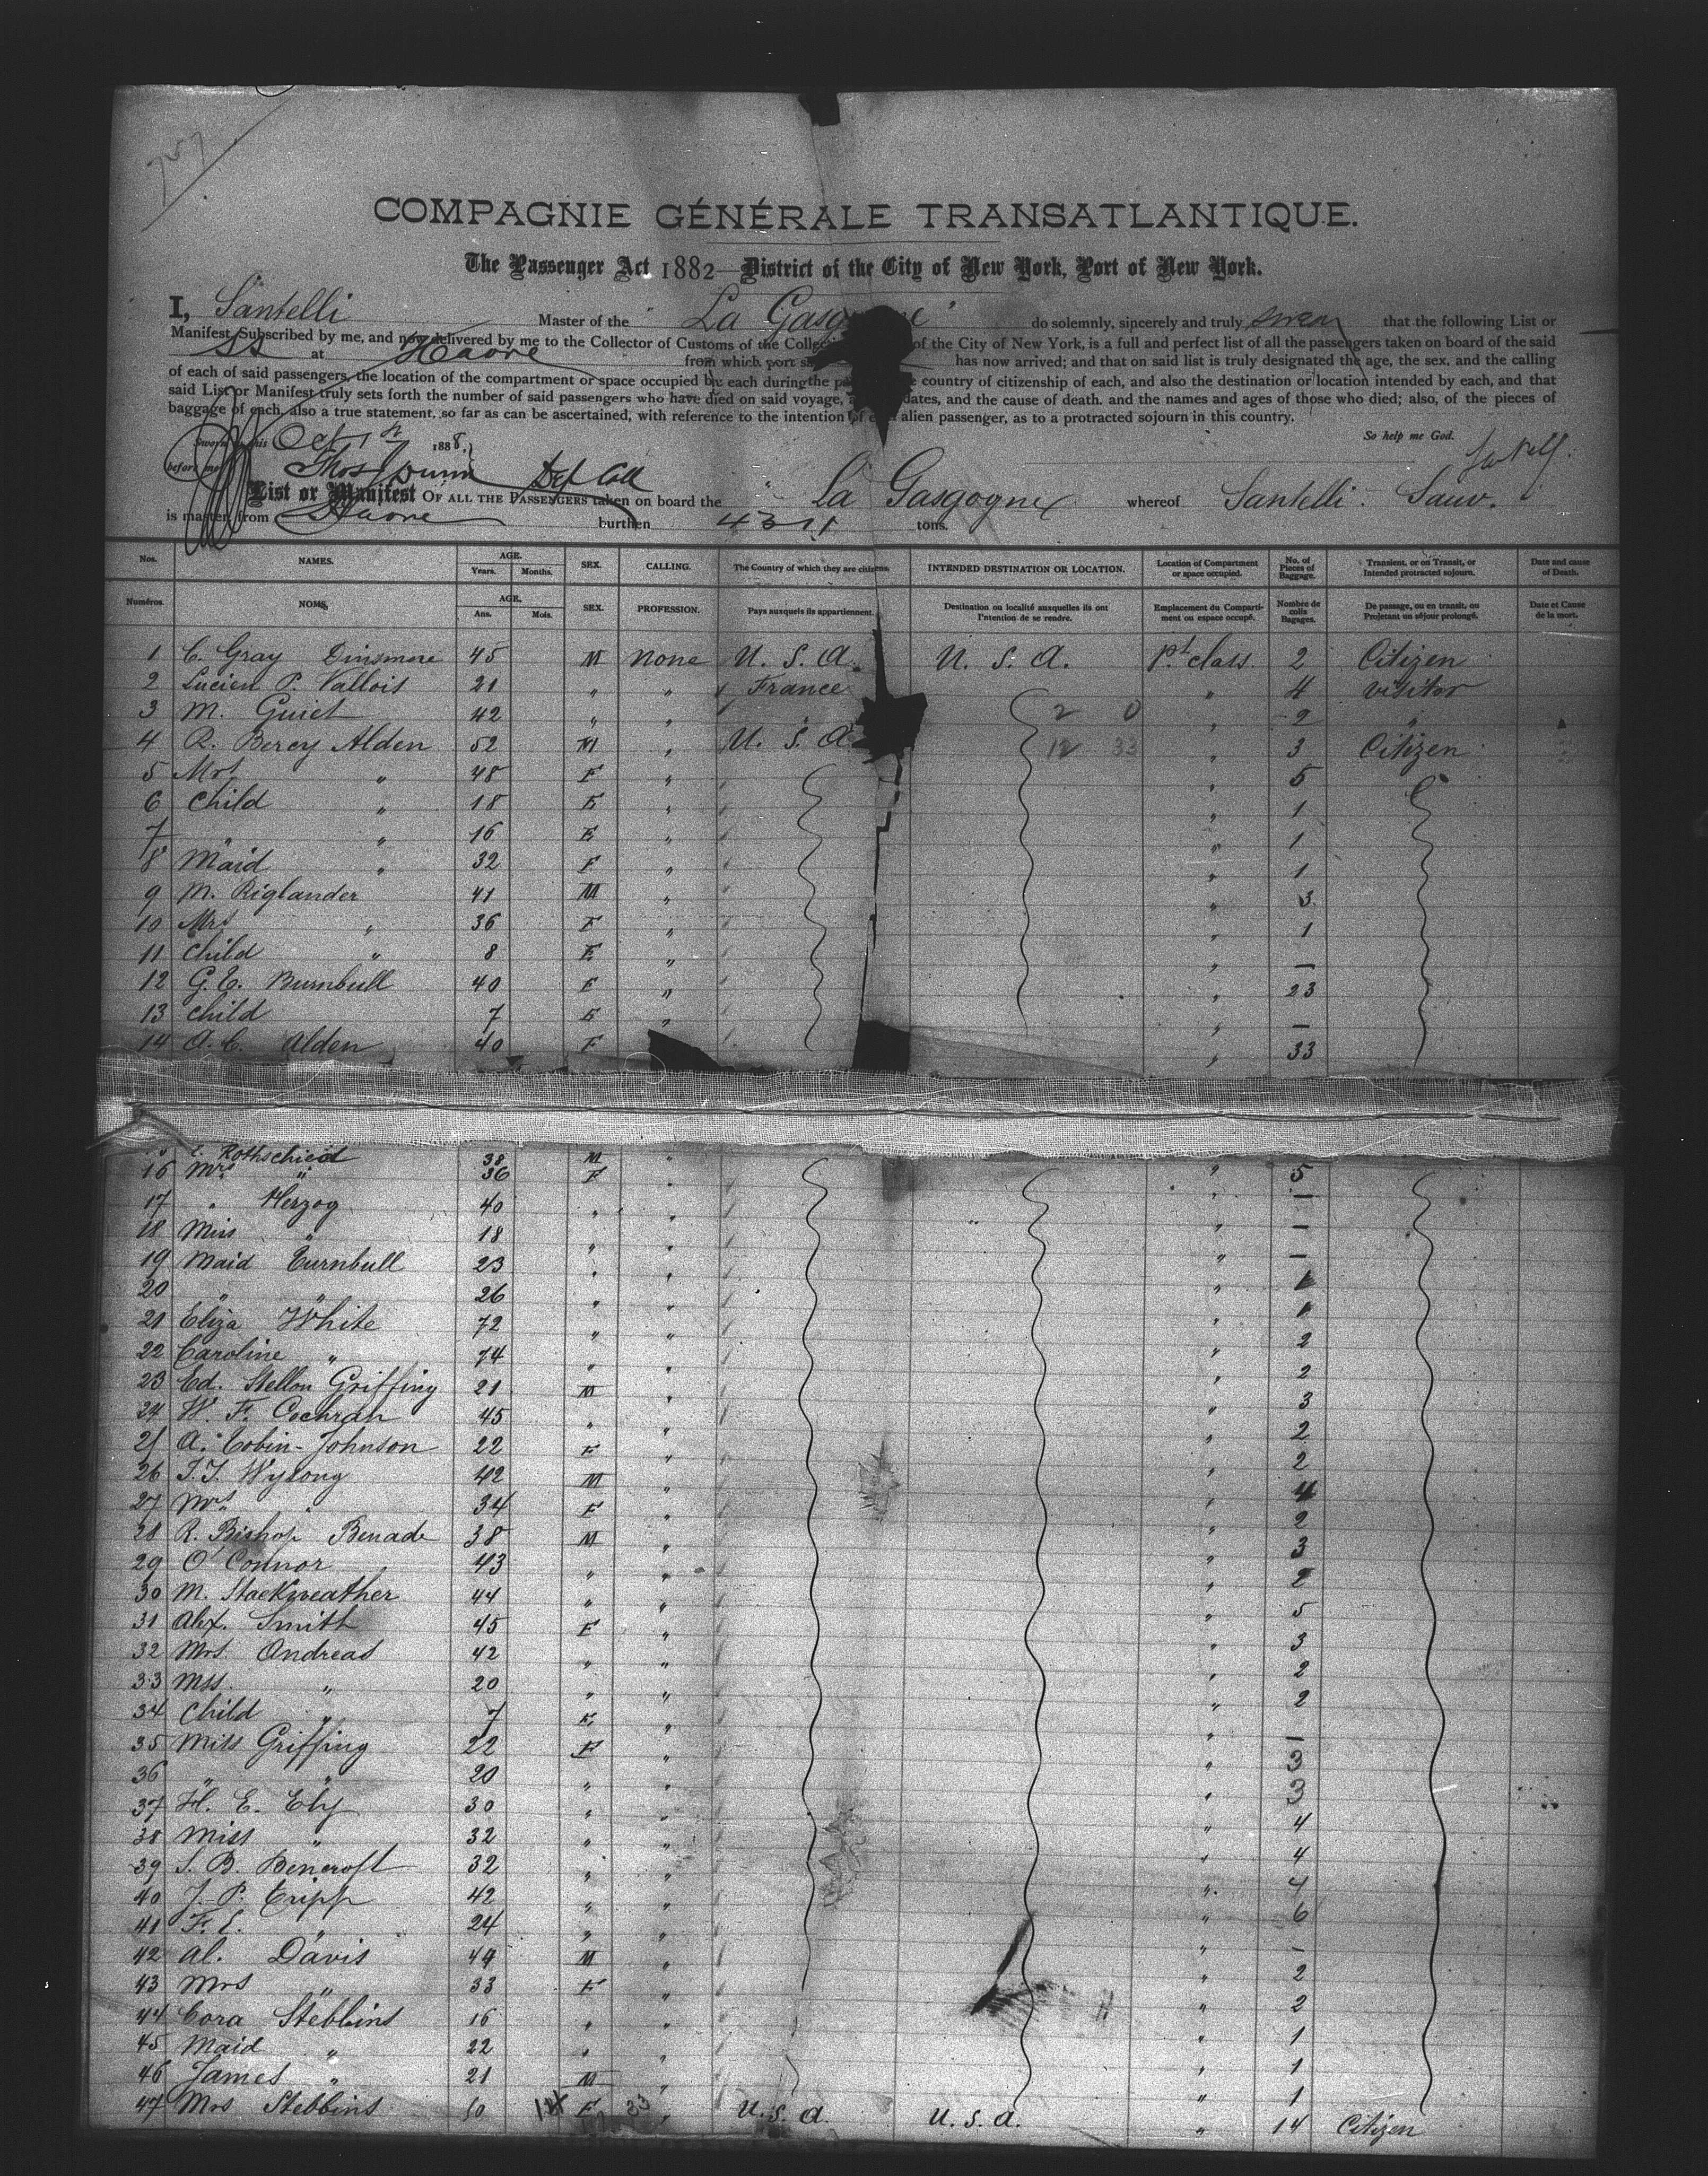 757
COMPAGNIE GÉNÉRALE TRANSATLANTIQUE.
The Passenger Act 1882—District of the City of New York, Port of New York.
I, Santelli Master of the La Gasgogne do solemnly, sincerely and truly swear that the following List or
Manifest, Subscribed by me, and now delivered by me to the Collector of Customs of the Collec of the City of New York, is a full and perfect list of all the passengers taken on board of the said
SS at Havre from which port s has now arrived; and that on said list is truly designated the age, the sex, and the calling
of each of said passengers, the location of the compartment or space occupied by each during the p country of citizenship of each, and also the destination or location intended by each, and that
said List or Manifest truly sets forth the number of said passengers who have died on said voyage, dates, and the cause of death. and the names and ages of those who died; also, of the pieces of
baggage of each, also a true statement, so far as can be ascertained, with reference to the intention of each alien passenger, as to a protracted sojourn in this country.
So help me God.
Sworn this Oct 1st 1888,
before me Thos Dunn Dep Coll
List or Manifest OF ALL THE PASSENGERS taken on board the La Gasgogne whereof Santelli. Sauv.
is master, from Havre burthen 4311 tons.
Nos. NAMES. AGE. Years. Months. SEX. CALLING. The Country of which they are citizens. INTENDED DESTINATION OR LOCATION. Location of Compartment or space occupied. No. of Pieces of Baggage. Transient, or on Transit, or Intended protracted sojourn. Date and cause of Death.
Numéros. NOMS, AGE. Ans. Mois. SEX. PROFESSION. Pays auxquels ils appartiennent. Destination ou localité auxquelles ils ont l'intention de se rendre. Emplacement du Compartiment ou espace occupé. Nombre de colis Bagages. De passage, ou en transit, ou Projetant un séjour prolongé. Date et Cause de la mort.
1 C. Gray Dinsmore 45 M none U. S. A. U. S. A. 1st class 2 Citizen
2 Lucien P. Vallois 21 " " France " 4 visitor
3 M. Guiet 42 " " " 2 0 " 2 "
4 R. Bercy Alden 52 M " U. S. A 12 33 " 3 Citizen
5 Mrs " 48 F " " 5
6 child " 18 F " " 1
7 " " 16 F " " 1
8 Maid " 32 F " " 1
9 M. Riglander 41 M " " 3
10 Mrs " 36 F " " 1
11 child " 8 F " " —
12 G. E. Burnbull 40 F " " 23
13 child 7 F " " —
14 A. C. Alden 40 F " 33
Rothschied 38 M "
16 Mrs " 36 F " " 5
17 " Herzog 40 " " " —
18 Miss " 18 " " " —
19 Maid Turnbull 23 " " " —
20 " " 26 " " " 1
21 Eliza White 72 " " " 1
22 Caroline " 74 " " " 2
23 Ed. Stellon Griffing 21 M " " 2
24 W. F. Cochran 45 " " " 3
25 A. Tobin-Johnson 22 F " " 2
26 T. J. Wysong 42 M " " 2
27 Mrs " 34 F " " 4
28 R. Bishop Benade 38 M " " 2
29 O'Connor 43 " " " 3
30 M. Stackweather 44 " " " 2
31 Alex. Smith 45 F " " 5
32 Mrs. Andreas 42 " " " 3
33 Mss. " 20 " " " 2
34 child " 7 F " " 2
35 Miss Griffing 22 F " " —
36 " " 20 " " " 3
37 H. E. Ely 30 " " " 3
38 Miss " 32 " " " 4
39 S. B. Bencroft 32 " " " 4
40 J. P. Tripp 42 " " " 4
41 F. E. " 24 " " " 6
42 Al. Davis 49 M " " -
43 Mrs " 33 F " " 2
44 Cora Stebbins 16 " " " 2
45 Maid " 22 " " " 1
46 James " 21 M " " 1
47 Mrs Stebbins 50 14 F 33 " U. S. A. U. S. A. " 1
14 Citizen